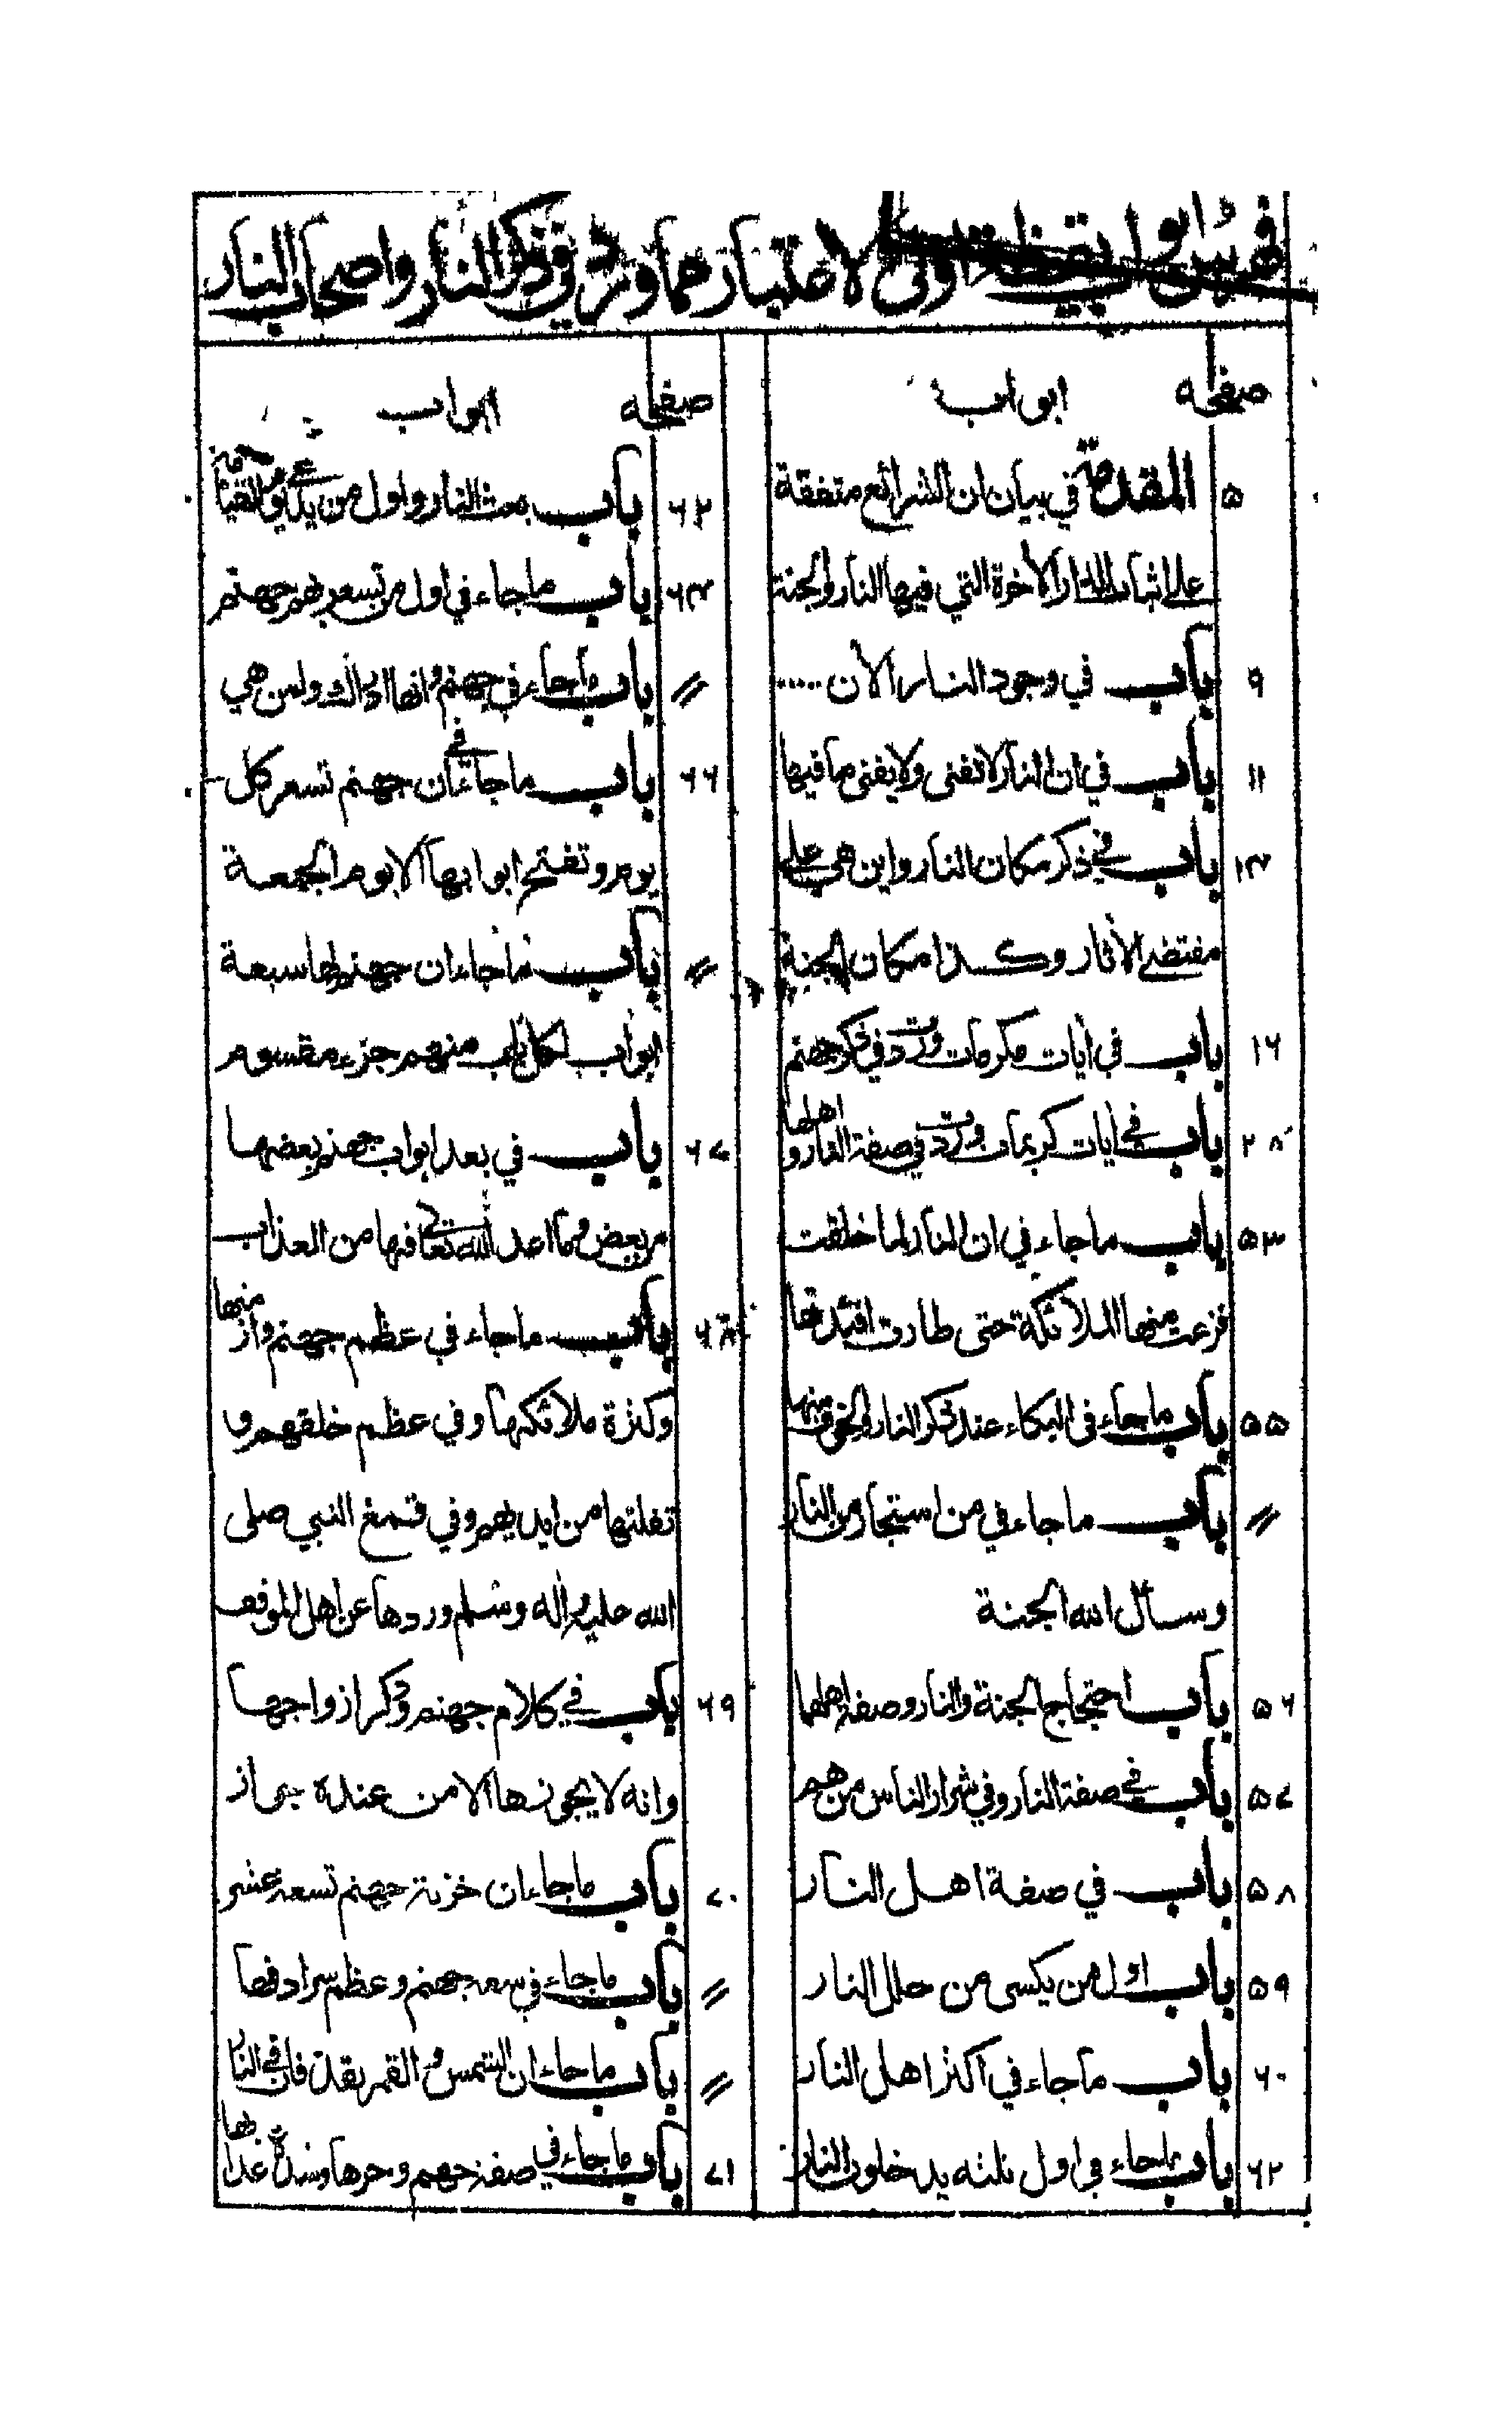 فهرس ابواب يقظة اولى الاعتبار مما ورد في ذكر النار واصحاب النار
صفحه ابواب
۵ المقدمة في بيان ان الشرائع متفقة
على اثبات الدار الآخرة التي فيها النار والجنة
۹ باب في وجود النار الآن .....
۱۱ باب في ان النار لا تفنى ولا يفنى ما فيها
۱۳ باب في ذكر مكان النار واين هي على
مقتضى الآثار وكذا مكان الجنة
۱۶ باب في آيات مكرمات وردت في ذكر جهنم
۲۸ باب في آيات كريمات وردت في صفة النار واهلها
۵۳ باب ما جاء في ان النار لما خلقت
فزعت منها الملائكة حتى طارت افئدتها
۵۵ باب ما جاء في البكاء عند ذكر النار والخوف منها
〃 باب ما جاء في من استجار من النار
وسأل الله الجنة
۵۶ باب احتجاج الجنة والنار وصفة اهلهما
۵۷ باب في صفة النار وفي شرار الناس من هم
۵۸ باب في صفة اهل النار
۵۹ باب اول من يكسى من حلل النار
۶۰ باب ما جاء في اكثر اهل النار
۶۲ باب ما جاء في اول ثلثه يدخلون النار
صفحه ابواب
۶۲ باب بعث النار واول من يدعى يوم القيامة
۶۳ باب ما جاء في اول من تسعر بهم جهنم
〃 باب ما جاء في جهنم وانها ادراك ولمن هي
۶۶ باب ما جاء في ان جهنم تسعر كل
يوم وتفتح ابوابها الا يوم الجمعة
〃 باب ما جاء ان جهنم لها سبعة
ابواب لكل باب منهم جزء مقسوم
۶۷ باب في بعد ابواب جهنم بعضها
من بعض وما اعد الله تعالى فيها من العذاب
۶۸ باب ما جاء في عظم جهنم وازمتها
وكثرة ملائكتها وفي عظم خلقهم و
تفلتها من ايديهم وفي قمع النبي صلى
الله عليه وآله وسلم وردها عن اهل الموقف
۶۹ باب في كلام جهنم وذكر ازواجها
وانه لا يجوزها الا من عنده جواز
۷۰ باب ما جاء ان خزنة جهنم تسعة عشر
〃 باب ما جاء في سعة جهنم وعظم سرادقها
〃 باب ما جاء ان الشمس والقمر يقذفان في النار
۷۱ باب ما جاء في صفة جهنم وحرها وشدة عذابها